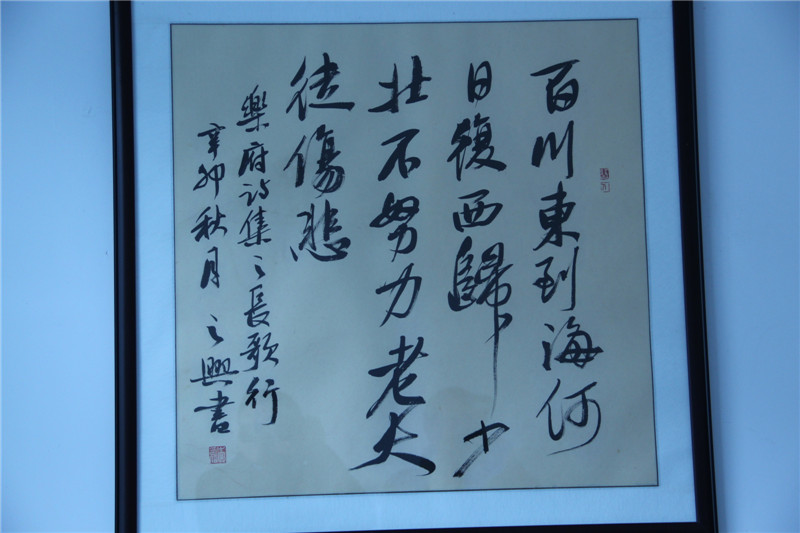 百川東到海何
日復西歸少
壯不努力老大
徒傷悲
樂府诗集之長歌行
辛卯秋月之興書